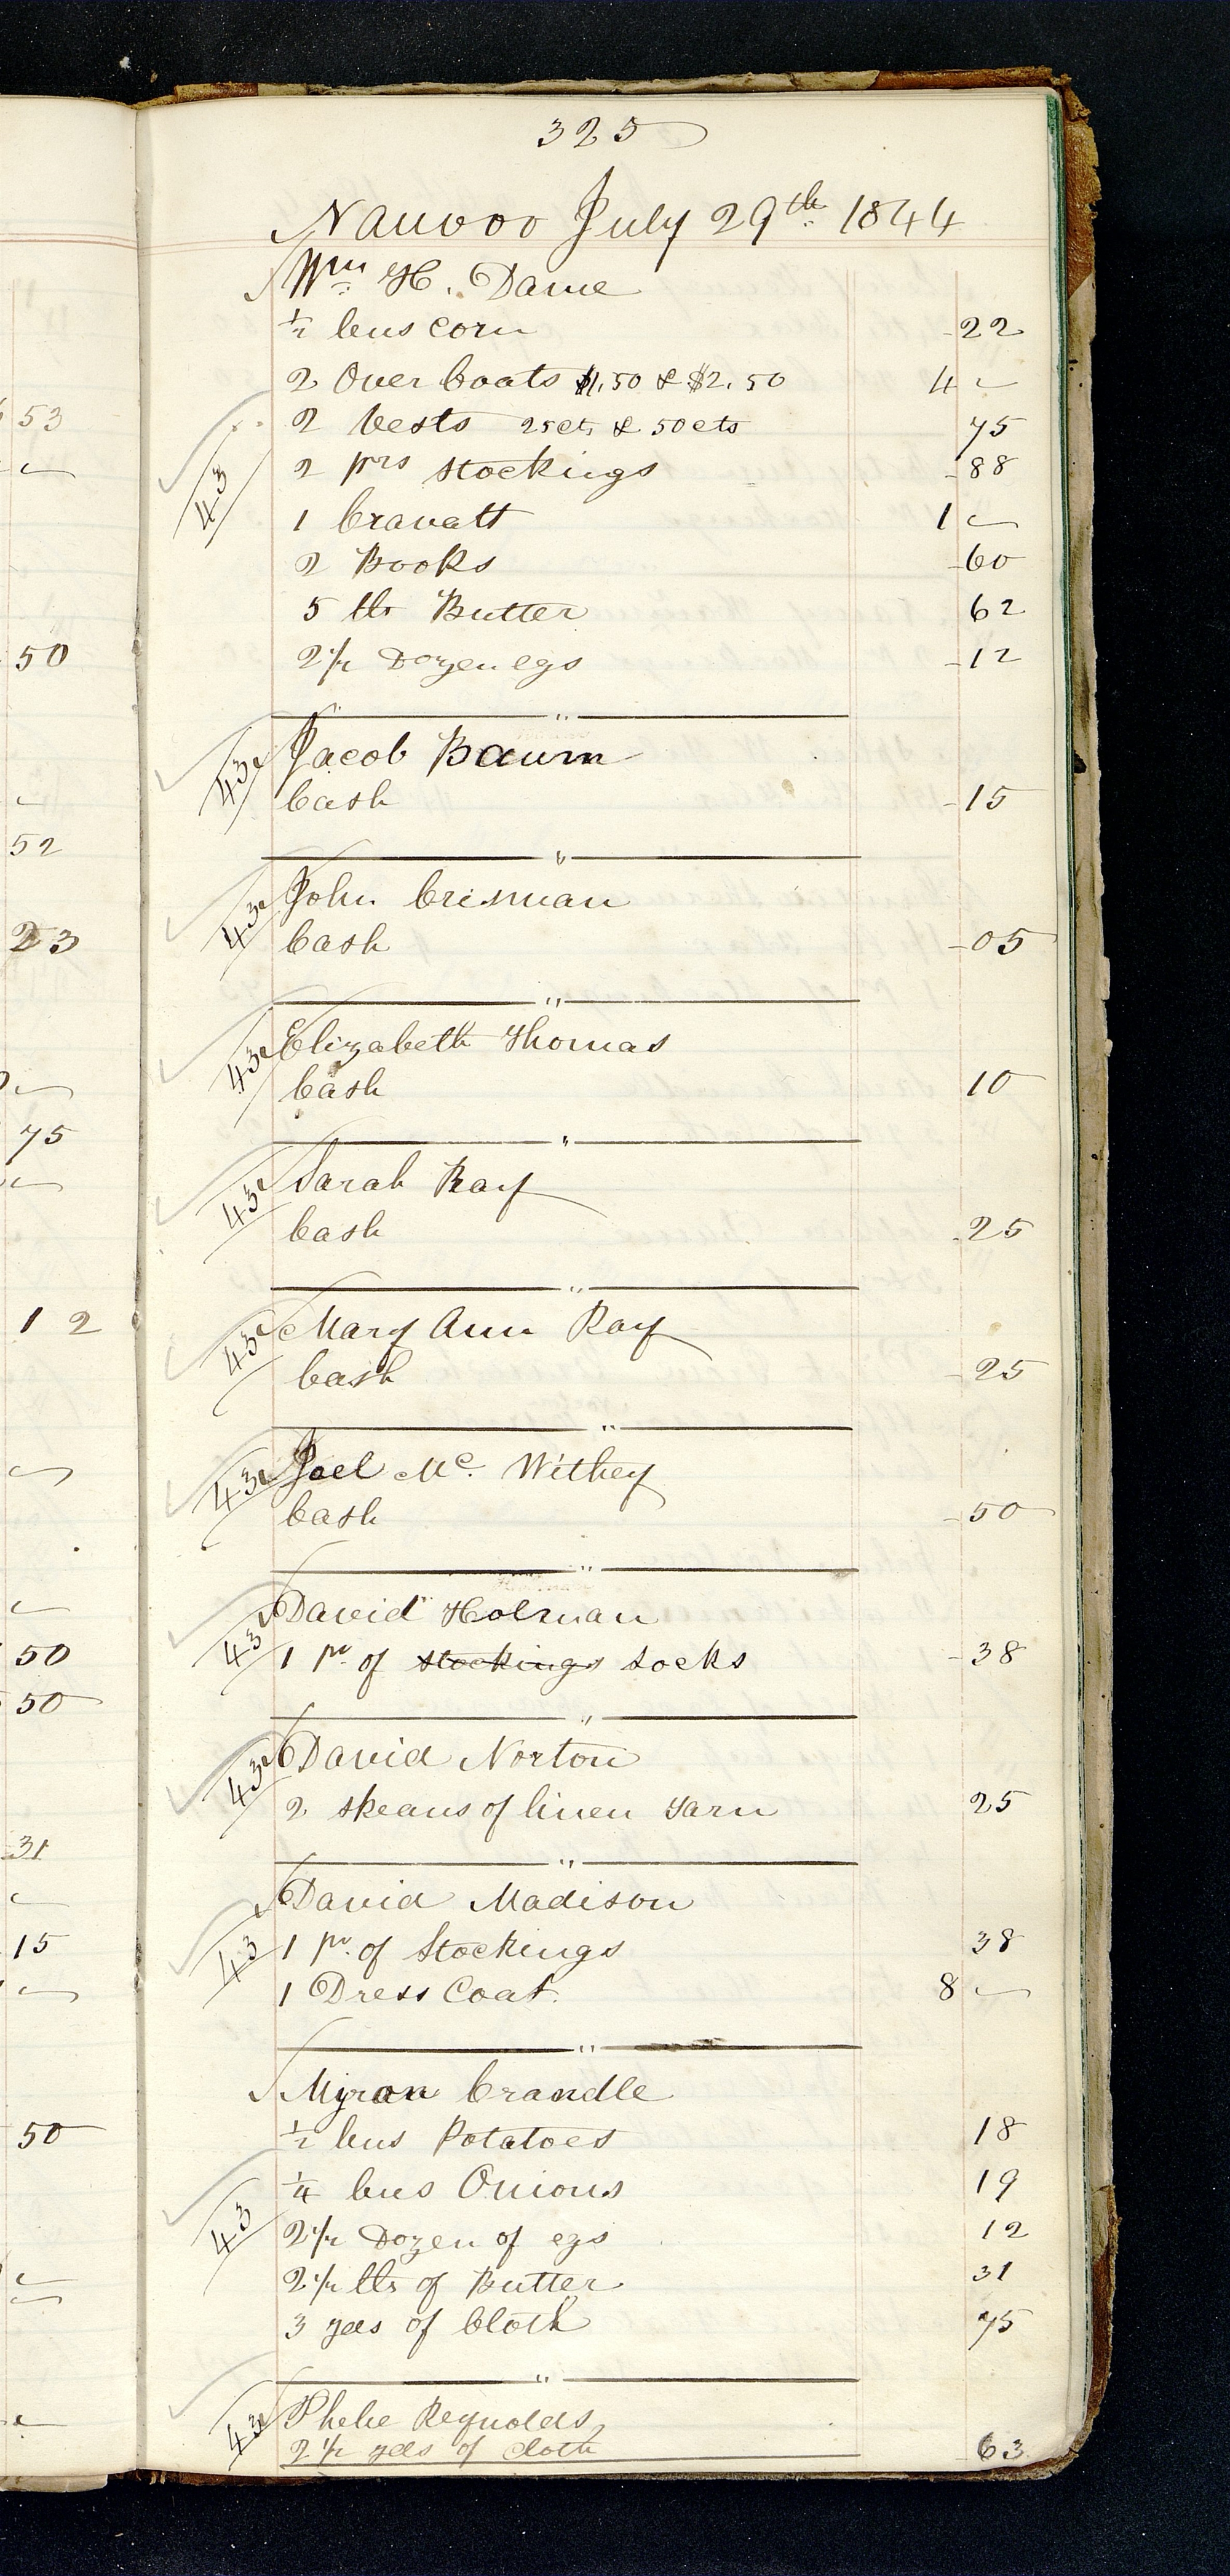 325
Nauvoo July 29th 1844
Wm H. Dame
½ bus corn 22
2 Over Coats $1,50 & $2.50 4 —
2 Vests 25cts & 50cts 75
2 prs stockings 88
43
1 Cravatt 1 —
2 Books 60
5 lbs Butter 62
2½ Dozen egs 12
"
43 Jacob Baum
Cash 15
"
43 John Crisman
Cash 05
"
43 Elizabeth Thomas
Cash 10
"
43 Sarah Ray
Cash 25
"
43 Mary Ann Ray
Cash 25
"
43 Joel Mc. Withey
Cash 50
"
43 David Holman
1 pr of stockings socks 38
"
43 David Norton
2 skeans of linen yarn 25
"
David Madison
43 1 pr. of Stockings 38
1 Dress Coat. 8 —
"
Myron Crandle
½ bus Potatoes 18
¼ bus Onions 19
43
2½ Dozen of egs 12
2½ lbs of Butter 31
3 yds of Cloth 75
"
43 Phebe Reynolds
2½ yds of cloth 63
53
—
50
—
52
23
—
75
—
12
—
—
50
50
31
—
15
—
50
—
—